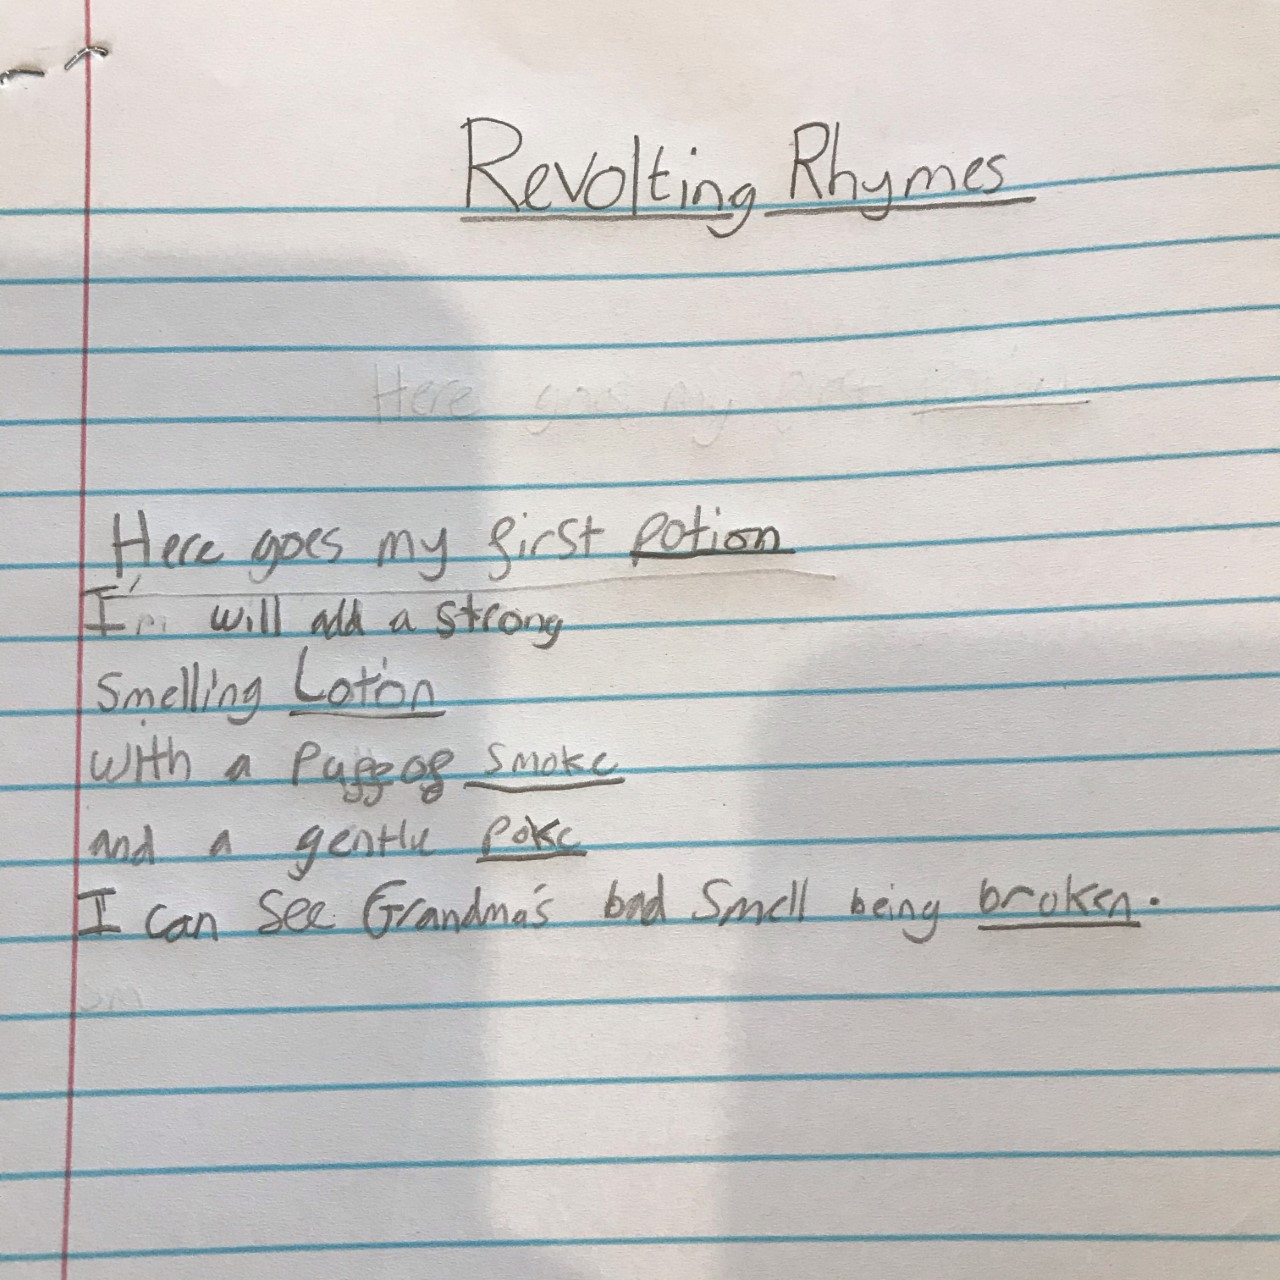 Revolting Rhymes
Here goes my first
Here goes my first potion
I will add a strong
Smelling Lotion
with a Puff of smoke
and a gentle poke
I can See Grandma's bad Smell being broken.